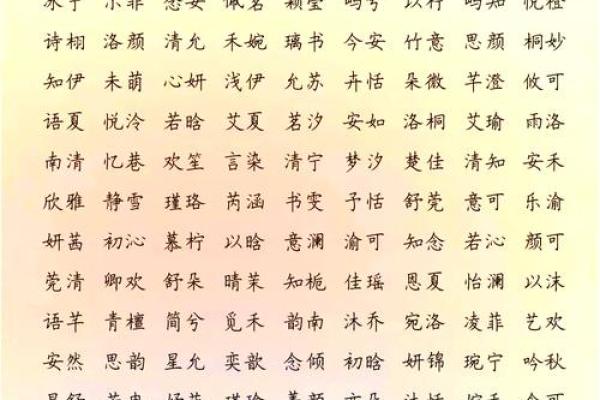 诗栩 洛颜 清允 禾婉 璃书 今安 竹意 思颜 桐妙
知伊 未萌 心妍 浅伊 允苏 卉恬 朵微 芊澄 攸可
语夏 悦泠 若晗 艾夏 茗汐 安如 洛桐 艾瑜 雨洛
南清 忆巷 欢笙 言染 清宁 梦汐 楚佳 清知 安禾
欣雅 静雪 瑾珞 芮涵 书雯 予恬 舒莞 意可 乐渝
妍茜 初沁 慕柠 以晗 意澜 渝可 知念 若沁 颜可
莞清 卿欢 舒朵 晴茉 知栀 佳瑶 恩夏 怡澜 以沫
语芊 青檀 简兮 觅禾 韵南 沐乔 宛洛 凌菲 艺欢
安然 思韵 星允 奕歆 念倾 初晗 妍锦 琬宁 吟秋